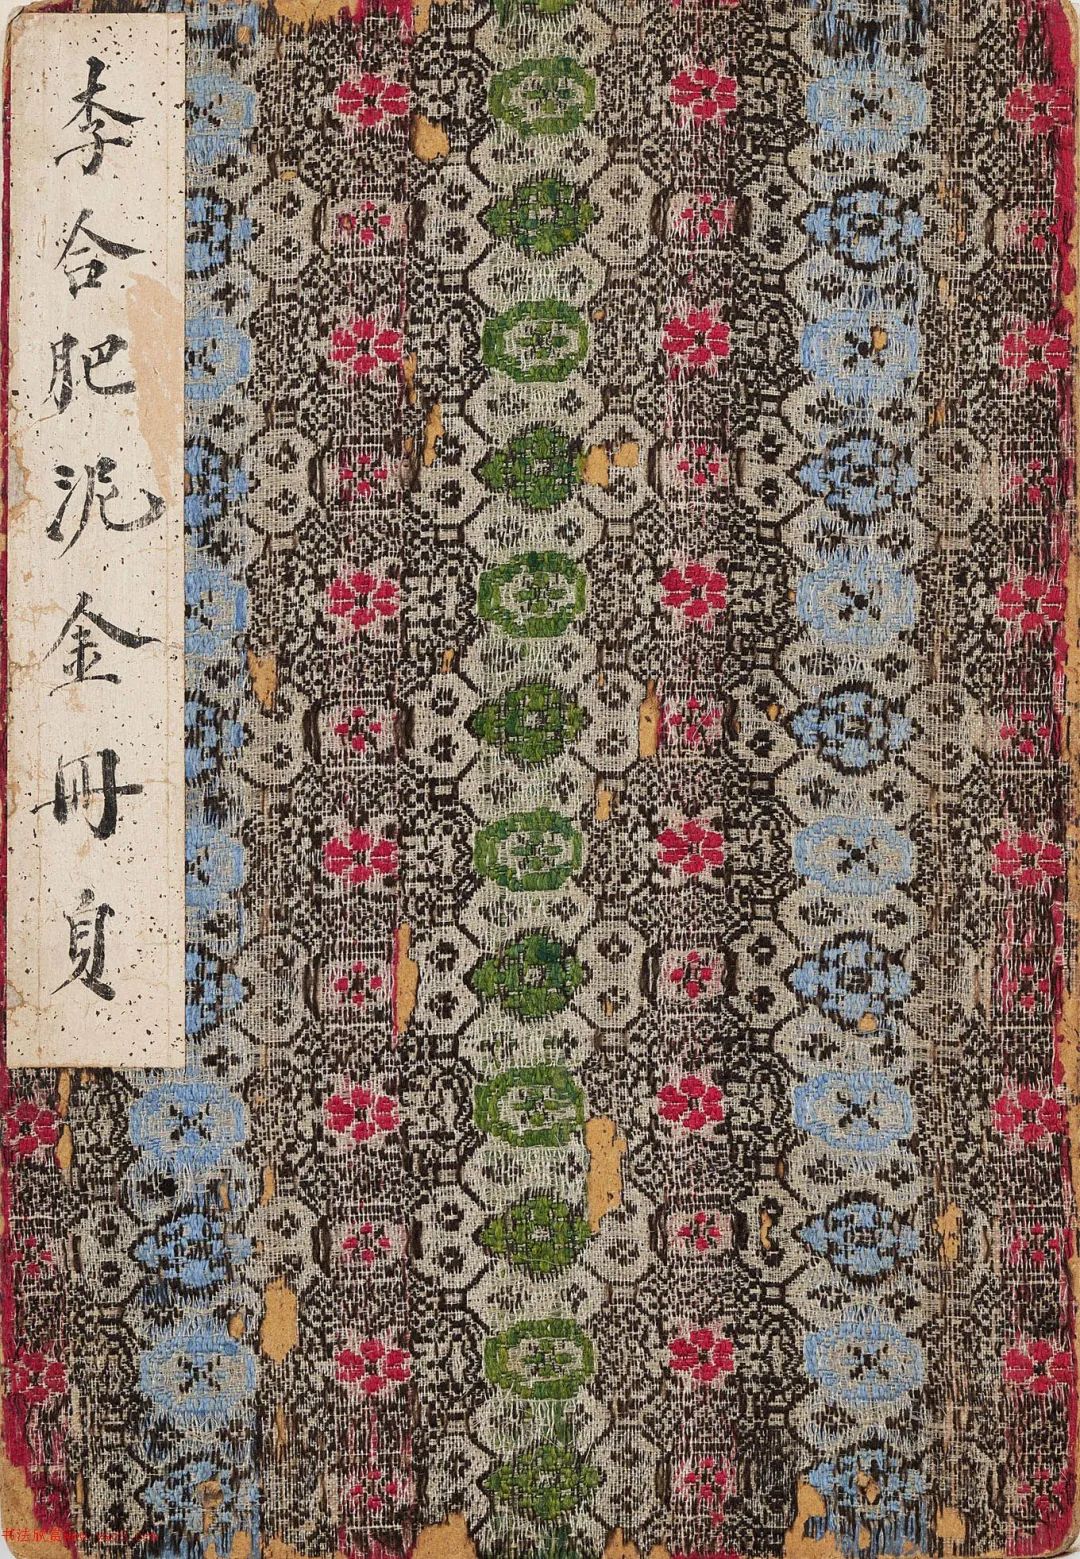 李合肥泥金冊頁
书法欣赏